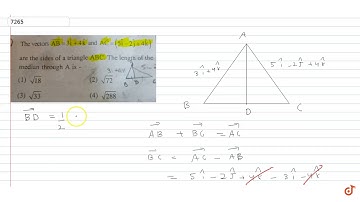 7265
The vectors AB = 3i + 4k and AC = 5i - 2j + 4k
are the sides of a triangle ABC. The length of the
median through A is -
(1) √18
(2) √72
(3) √33
(4) √288
A
3î+4k̂
5î-2ĵ+4k̂
B
D
C
BD = 1/2
AB + BC = AC
BC = AC - AB
= 5î - 2ĵ + 4k̂ - 3î - 4k̂